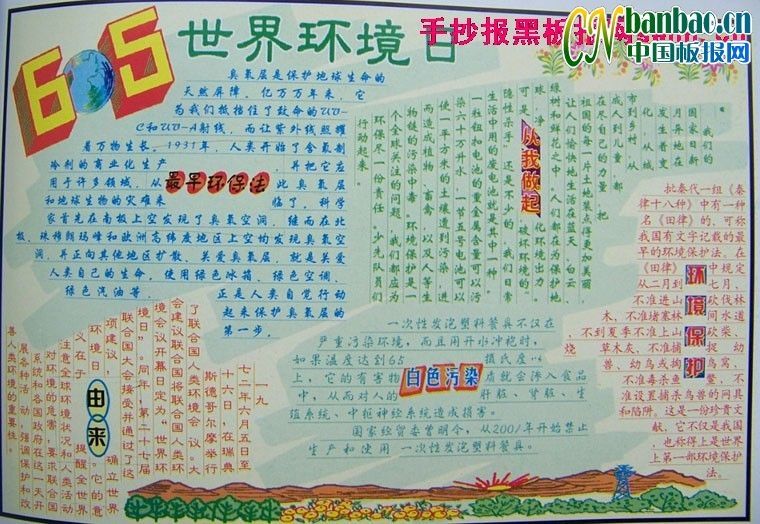 手抄报黑板报
CN banbao.cn
中国板报网
6 5
世界环境日
臭氧层是保护地球生命的
天然屏障。亿万万年来，它
为我们抵挡住了致命的UV-
C和UV-A射线，而让紫外线照耀
着万物生长。1931年，人类开始了含氟制
冷剂的商业化生产 并把它应
用于许多领域，从 此臭氧层
和地球生物的灾难来 临了。科学
家首先在南极上空发现了臭氧空洞，继而在北
极、珠穆朗玛峰和欧洲高纬度地区上空均发现臭氧空
洞，并正向其他地区扩散。关爱臭氧层，就是关爱
人类自己的生命，使用绿色冰箱、绿色空调、
绿色汽油等， 正是人类自觉行动
起来保护臭氧层的
第一步。
最早环保法
“我们的
国家日新
月异地在
发生着变
化，从城
市到乡村，从
成人到儿童，都
在尽自己的力量，把
祖国的每一片土地装点得更加美丽
让人们愉快地生活在蓝天、白云、
绿树和鲜花之中，人人都在为保护地
球、净 化环境出力。
可是， 破坏环境的“
隐性杀手”还是不少的，我们日常
生活中用的废电池就是其中一种，
一粒钮扣电池的重金属含量可以污
染六十万升水，一节五号电池可以
使一平方米的土壤遭到污染，进
而造成植物、畜禽，以及人等生
物链的污染中毒。环境保护是一
个全球关注的问题，我们都应为
环保尽一份责任，少先队员们
行动起来。
从我做起
批秦代一组《秦
律十八种》中有一种
名《田律》的，可称
我国有文字记载的最
早的环境保护法。在
《田律》 中规定
从二月到
不准进山 砍伐林
木，不准堵塞林 间水道
，不到夏季不准上山 砍柴、
烧 草木灰，不准捕 捉幼
兽、幼鸟或掏 鸟窝、
不准毒杀鱼 鳖，不
准设置捕杀鸟兽的网具
和陷阱，这是一份珍贵文
献，它不仅是我国
，也称得上是世界
上第一部环境保护
法。
环境保护
一次性发泡塑料餐具不仅在
严重污染环境，而且用开水冲袍时，
如果温度达到65 摄氏度以
上，它的有害物 质就会渗入食品
中，从而对人的 肝脏、肾脏、生
殖系统、中枢神经系统造成损害。
国家经贸委曾明令，从2001年开始禁止
生产和使用一次性发泡塑料餐具。
白色污染
一九
七二年六月五日至
十六日，在瑞典
斯德哥尔摩举行
了联合国人类环境会议。大
会建议联合国将联合国人类环
境会议开幕日定为“世界环
境日”。同年，第二十七届
联合国大会接受并通过了这
项建议， 确立世界
环境日 的意
义在于 提醒全世界
注意全球环境状况和人类活动
对环境的危害，要求联合国
系统和各国政府在这一天开
展各种活动，强调保护和改
善人类环境的重要性。
由来